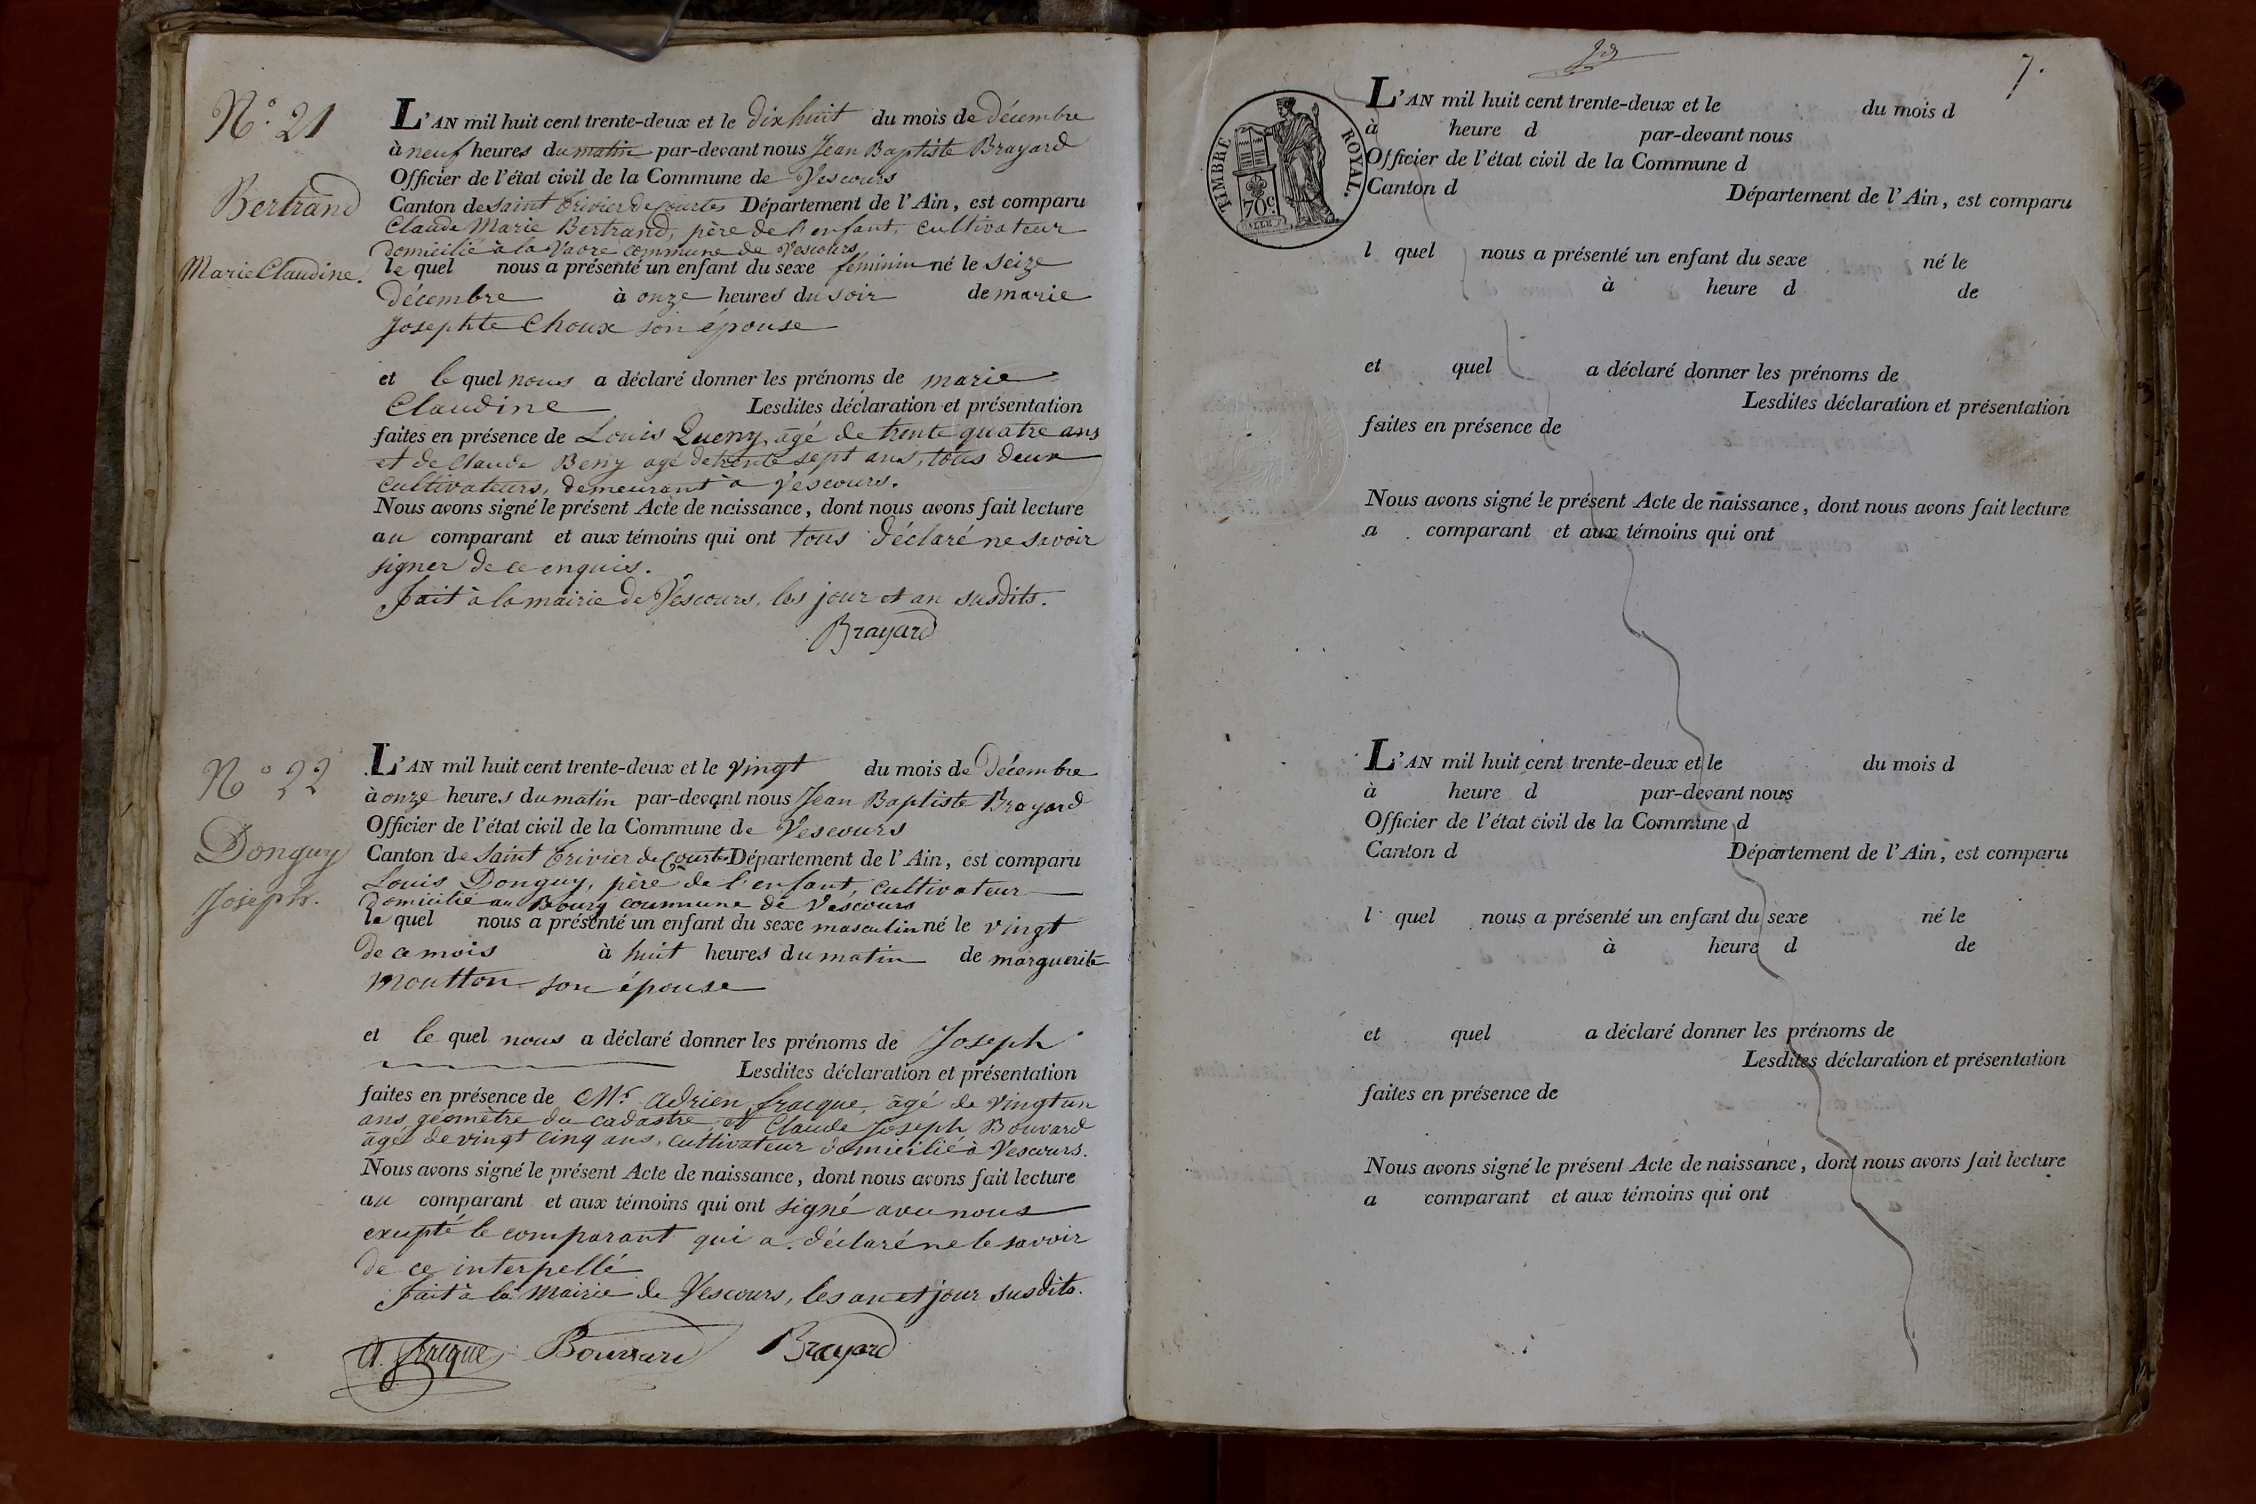 N.° 21
Bertrand
Marie Claudine.
L'AN mil huit cent trente-deux et le dix huit du mois de décembre
à neuf heures du matin par-devant nous Jean Baptiste Brayard
Officier de l'état civil de la Commune de Vescours
Canton de Saint Trivier de Courtes Département de l'Ain, est comparu
Claude Marie Bertrand, père de l'enfant, cultivateur
domicilié à la commune de Vescours
le quel nous a présenté un enfant du sexe féminin né le seize
décembre à onze heures du soir de marie
Josephte Choux son épouse
et le quel nous a déclaré donner les prénoms de marie
Claudine Lesdites déclaration et présentation
faites en présence de Louis Queny, âgé de trente quatre ans
et de Claude Beny agé de trente sept ans, tous deux
cultivateurs, demeurant à Vescours.
Nous avons signé le présent Acte de naissance, dont nous avons fait lecture
au comparant et aux témoins qui ont tous déclaré ne savoir
signer de ce enquis.
fait à la mairie de Vescours, les jour et an susdits.
Brayard
N° 22
Donguy
Joseph.
L'AN mil huit cent trente-deux et le vingt du mois de Décembre
à onze heures du matin par-devant nous Jean Baptiste Brayard
Officier de l'état civil de la Commune de Vescours
Canton de Saint Trivier de Courtes Département de l'Ain, est comparu
Louis Donguy, père de l'enfant, cultivateur
domicilié au Bourg coumnune de Vescours
le quel nous a présenté un enfant du sexe masculin né le vingt
de ce mois à huit heures du matin de marguerite
moutton son épouse
et le quel nous a déclaré donner les prénoms de Joseph
Lesdites déclaration et présentation
faites en présence de Mr. Adrien fracque, âgé de vingt un
ans, géomètre du cadastre et Claude Joseph Bouvard
âgé de vingt cinq ans, cultivateur domicilié à Vescours.
Nous avons signé le présent Acte de naissance, dont nous avons fait lecture
au comparant et aux témoins qui ont signé avec nous
excepté le comparant qui a déclaré ne le savoir
de ce interpellé
fait à la Mairie de Vescours, les an et jour susdits.
A. fracque Bouvard Brayard
7.
TIMBRE ROYAL.
70c.
L'AN mil huit cent trente-deux et le du mois d
à heure d par-devant nous
Officier de l'état civil de la Commune d
Canton d Département de l'Ain, est comparu
l quel nous a présenté un enfant du sexe né le
à heure d de
et quel a déclaré donner les prénoms de
Lesdites déclaration et présentation
faites en présence de
Nous avons signé le présent Acte de naissance, dont nous avons fait lecture
a comparant et aux témoins qui ont
L'AN mil huit cent trente-deux et le du mois d
à heure d par-devant nous
Officier de l'état civil de la Commune d
Canton d Département de l'Ain, est comparu
l quel nous a présenté un enfant du sexe né le
à heure d de
et quel a déclaré donner les prénoms de
Lesdites déclaration et présentation
faites en présence de
Nous avons signé le présent Acte de naissance, dont nous avons fait lecture
a comparant et aux témoins qui ont